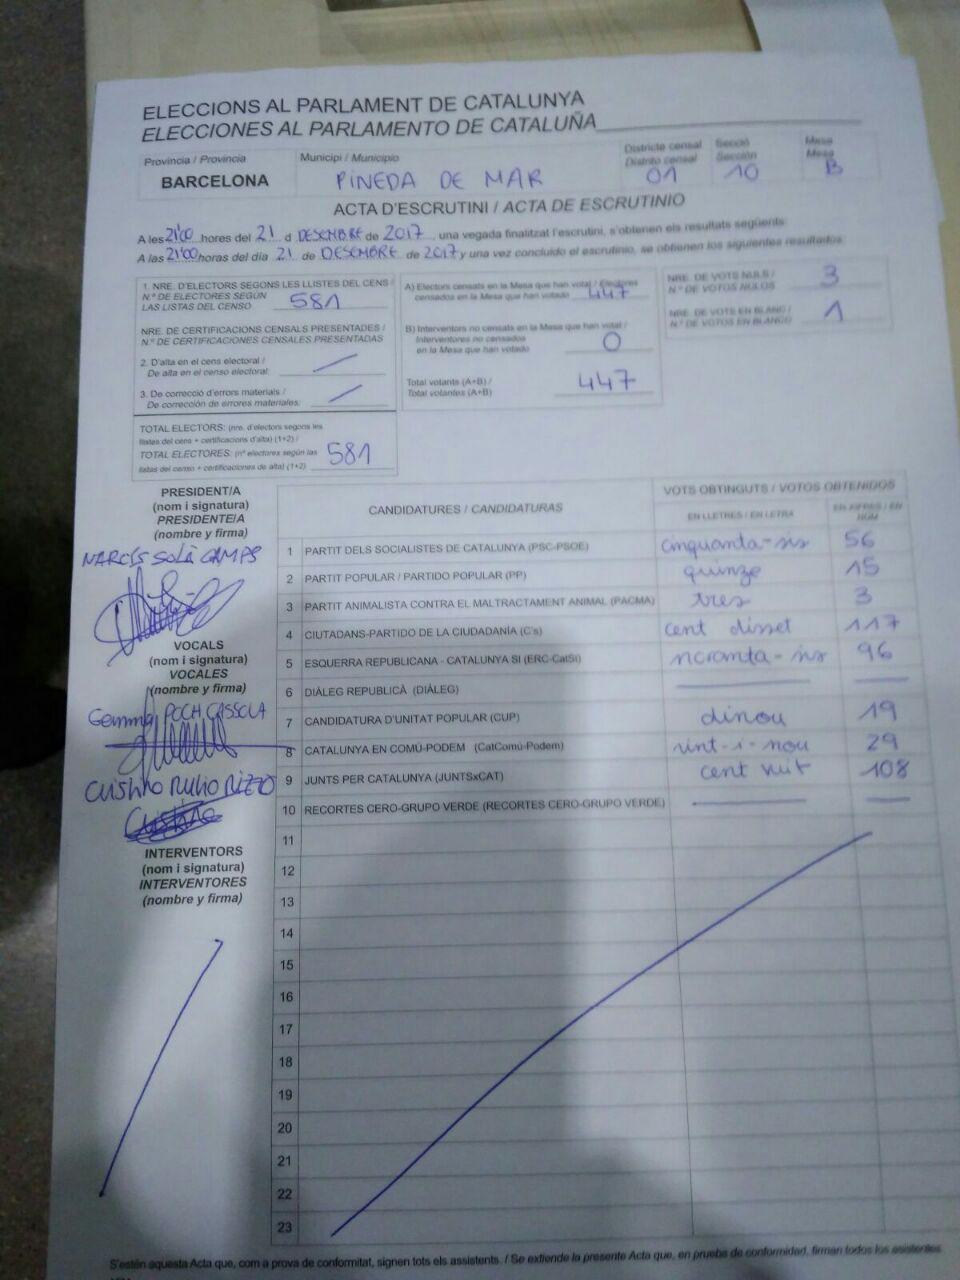 ELECCIONS AL PARLAMENT DE CATALUNYA
ELECCIONES AL PARLAMENTO DE CATALUÑA
Provincia / Provincia
BARCELONA
Municipi / Municipio
PINEDA DE MAR
Districte censal
Distrito censal
01
Secció
Sección
10
Mesa
Mesa
B
ACTA D'ESCRUTINI / ACTA DE ESCRUTINIO
A les 21'00 hores del 21 d DESEMBRE de 2017, una vegada finalitzat l'escrutini, s'obtenen els resultats següents:
A las 21'00 horas del día 21 de DESEMBRE de 2017 y una vez concluido el escrutinio, se obtienen los siguientes resultados:
1. NRE. D'ELECTORS SEGONS LES LLISTES DEL CENS /
N.º DE ELECTORES SEGÚN
LAS LISTAS DEL CENSO 581
NRE. DE CERTIFICACIONS CENSALS PRESENTADES /
N.º DE CERTIFICACIONES CENSALES PRESENTADAS
2. D'alta en el cens electoral /
De alta en el censo electoral:
3. De correcció d'errors materials /
De corrección de errores materiales:
TOTAL ELECTORS: (nre. d'electors segons les
llistes del cens + certificacions d'alta) (1+2) /
TOTAL ELECTORES: (nº electores según las
listas del censo + certificaciones de alta) (1+2) 581
A) Electors censats en la Mesa que han votat / Electores
censados en la Mesa que han votado 447
B) Interventors no censats en la Mesa que han votat /
Interventores no censados
en la Mesa que han votado 0
Total votants (A+B) /
Total votantes (A+B) 447
NRE. DE VOTS NULS /
N.º DE VOTOS NULOS 3
NRE. DE VOTS EN BLANC /
N.º DE VOTOS EN BLANCO 1
PRESIDENT/A
(nom i signatura)
PRESIDENTE/A
(nombre y firma)
NARCÍS SOLÀ CAMPS
VOCALS
(nom i signatura)
VOCALES
(nombre y firma)
Gemma POCH CASSOLA
RUBIO RIZZO
INTERVENTORS
(nom i signatura)
INTERVENTORES
(nombre y firma)
CANDIDATURES / CANDIDATURAS
VOTS OBTINGUTS / VOTOS OBTENIDOS
EN LLETRES / EN LETRA
EN XIFRES / EN NÚM
1 PARTIT DELS SOCIALISTES DE CATALUNYA (PSC-PSOE) cinquanta-sis 56
2 PARTIT POPULAR / PARTIDO POPULAR (PP) quinze 15
3 PARTIT ANIMALISTA CONTRA EL MALTRACTAMENT ANIMAL (PACMA) tres 3
4 CIUTADANS-PARTIDO DE LA CIUDADANÍA (C's) cent disset 117
5 ESQUERRA REPUBLICANA - CATALUNYA SI (ERC-CatSí) noranta-sis 96
6 DIÀLEG REPUBLICÀ (DIÀLEG)
7 CANDIDATURA D'UNITAT POPULAR (CUP) dinou 19
8 CATALUNYA EN COMÚ-PODEM (CatComú-Podem) vint-i-nou 29
9 JUNTS PER CATALUNYA (JUNTSxCAT) cent vuit 108
10 RECORTES CERO-GRUPO VERDE (RECORTES CERO-GRUPO VERDE)
11
12
13
14
15
16
17
18
19
20
21
22
23
S'estén aquesta Acta que, com a prova de conformitat, signen tots els assistents. / Se extiende la presente Acta que, en prueba de conformidad, firman todos los asistentes